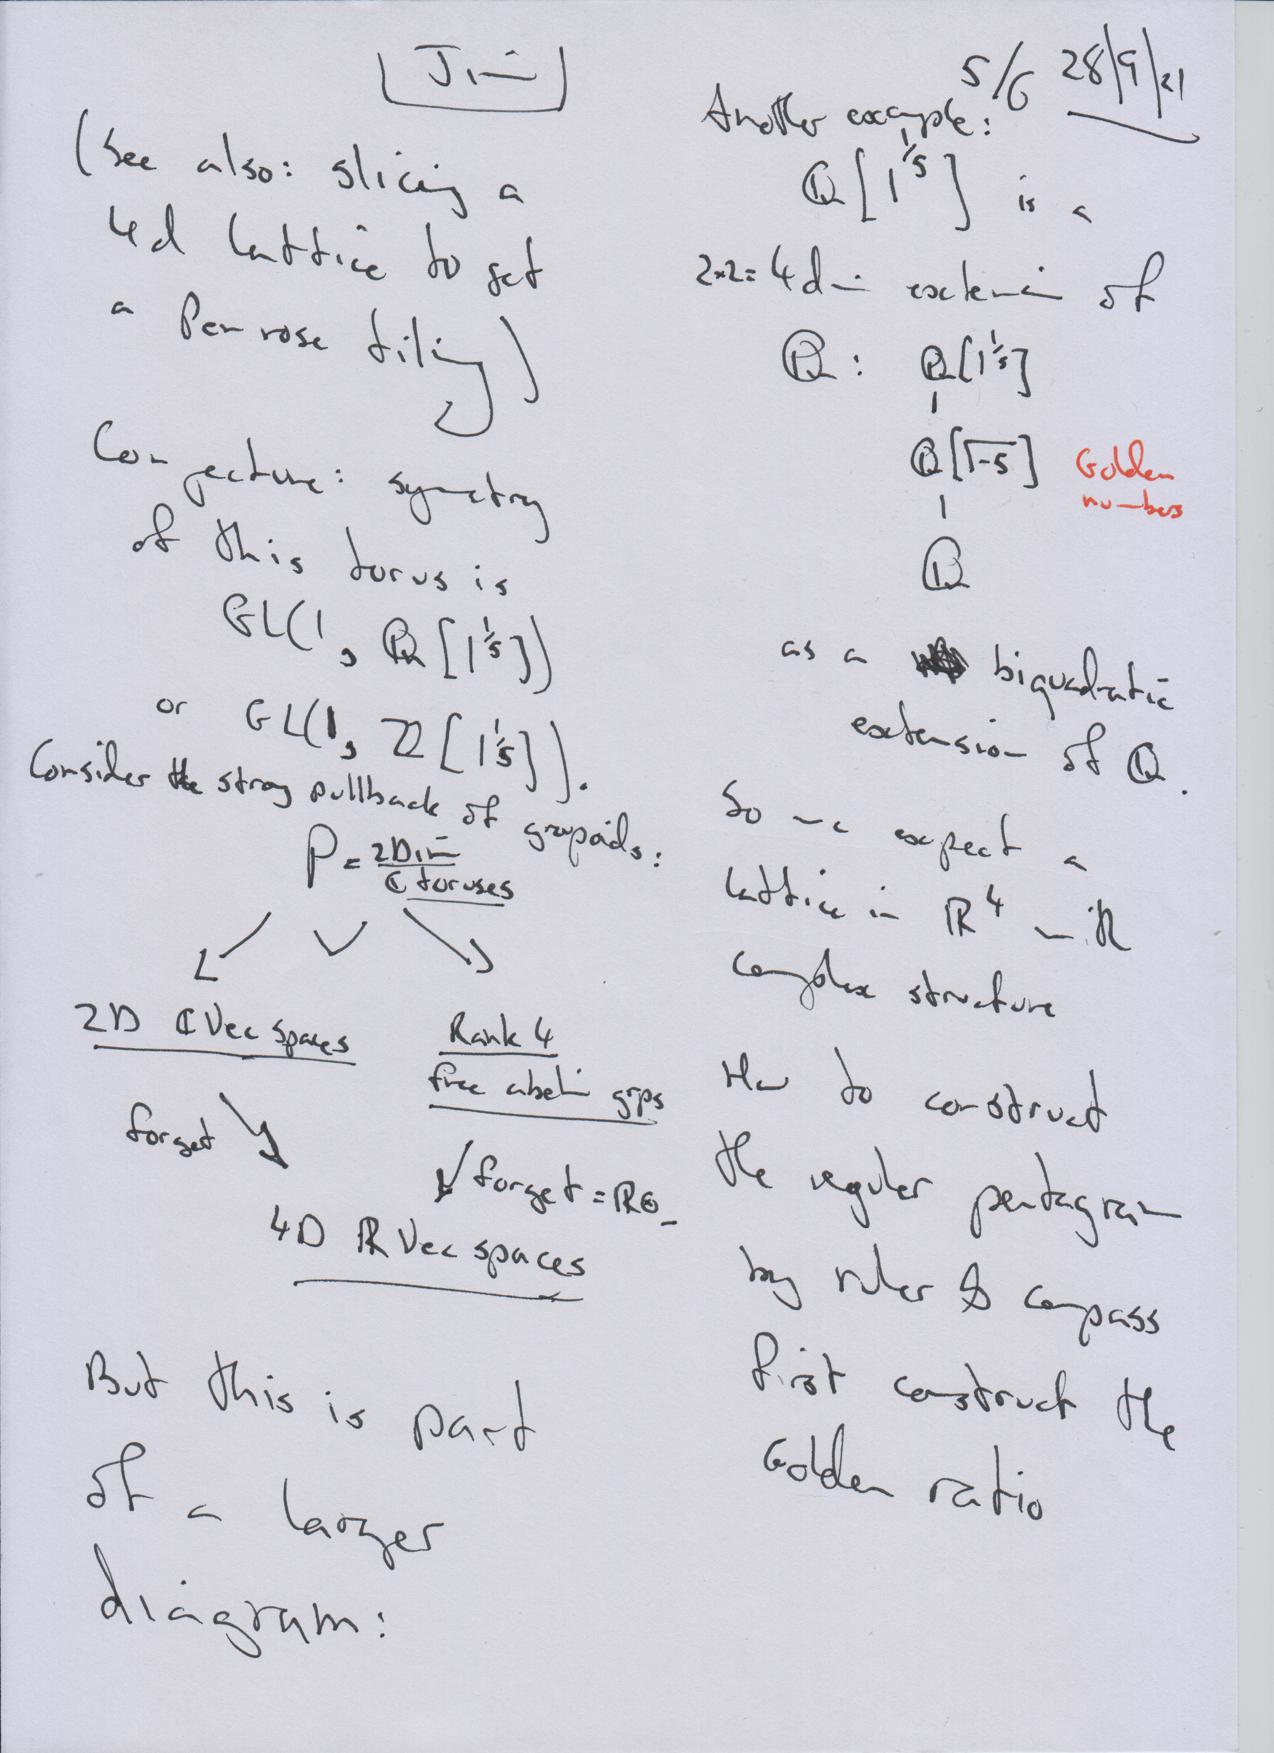 Jim
5/6 28/9/21
(See also: slicing a
4d lattice to get
a Penrose tiling)
Conjecture: symetry
of this torus is
GL(1, ℚ[1^{1/5}])
or GL(1, ℤ[1^{1/5}]).
Consider the strong pullback of groupoids:
P = 2Dim
ℂ toruses
2D ℂ Vec spaces
Rank 4
free abelian grps
forget
forget = ℝ⊗_
4D ℝ Vec spaces
But this is part
of a larger
diagram:
Another example:
ℚ[1^{1/5}] is a
2×2=4dim extension of
ℚ: ℚ[1^{1/5}]
ℚ[√-5] Golden
numbers
ℚ
as a biquadratic
extension of ℚ.
So we expect a
lattice in ℝ^4 with
complex structure
How to construct
the regular pentagram
by ruler & compass
first construct the
Golden ratio